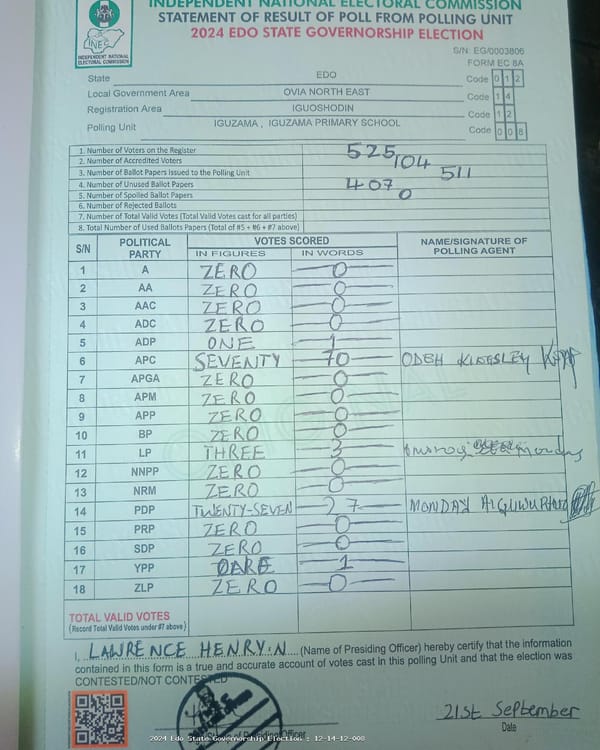 INDEPENDENT NATIONAL ELECTORAL COMMISSION
STATEMENT OF RESULT OF POLL FROM POLLING UNIT
2024 EDO STATE GOVERNORSHIP ELECTION
INEC
INDEPENDENT NATIONAL ELECTORAL COMMISSION
S/N: EG/0003806
FORM EC 8A
State EDO Code 0 1 2
Local Government Area OVIA NORTH EAST Code 1 4
Registration Area IGUOSHODIN Code 1 2
Polling Unit IGUZAMA , IGUZAMA PRIMARY SCHOOL Code 0 0 8
1. Number of Voters on the Register 525
2. Number of Accredited Voters 104
3. Number of Ballot Papers issued to the Polling Unit 511
4. Number of Unused Ballot Papers 407
5. Number of Spoiled Ballot Papers 0
6. Number of Rejected Ballots
7. Number of Total Valid Votes (Total Valid Votes cast for all parties)
8. Total Number of Used Ballots Papers (Total of #5 + #6 + #7 above)
S/N POLITICAL PARTY VOTES SCORED NAME/SIGNATURE OF POLLING AGENT
IN FIGURES IN WORDS
1 A ZERO 0
2 AA ZERO 0
3 AAC ZERO 0
4 ADC ZERO 0
5 ADP ONE 1
6 APC SEVENTY 70 ODEH
7 APGA ZERO 0
8 APM ZERO 0
9 APP ZERO 0
10 BP ZERO 0
11 LP THREE 3
12 NNPP ZERO 0
13 NRM ZERO 0
14 PDP TWENTY-SEVEN 27 MONDAY
15 PRP ZERO 0
16 SDP ZERO 0
17 YPP 1
18 ZLP ZERO 0
TOTAL VALID VOTES
(Record Total Valid Votes under #7 above)
I, LAWRENCE HENRY.N (Name of Presiding Officer) hereby certify that the information
contained in this form is a true and accurate account of votes cast in this polling Unit and that the election was
CONTESTED/NOT CONTESTED
21st September
Date
2024 Edo State Governorship Election : 12-14-12-008